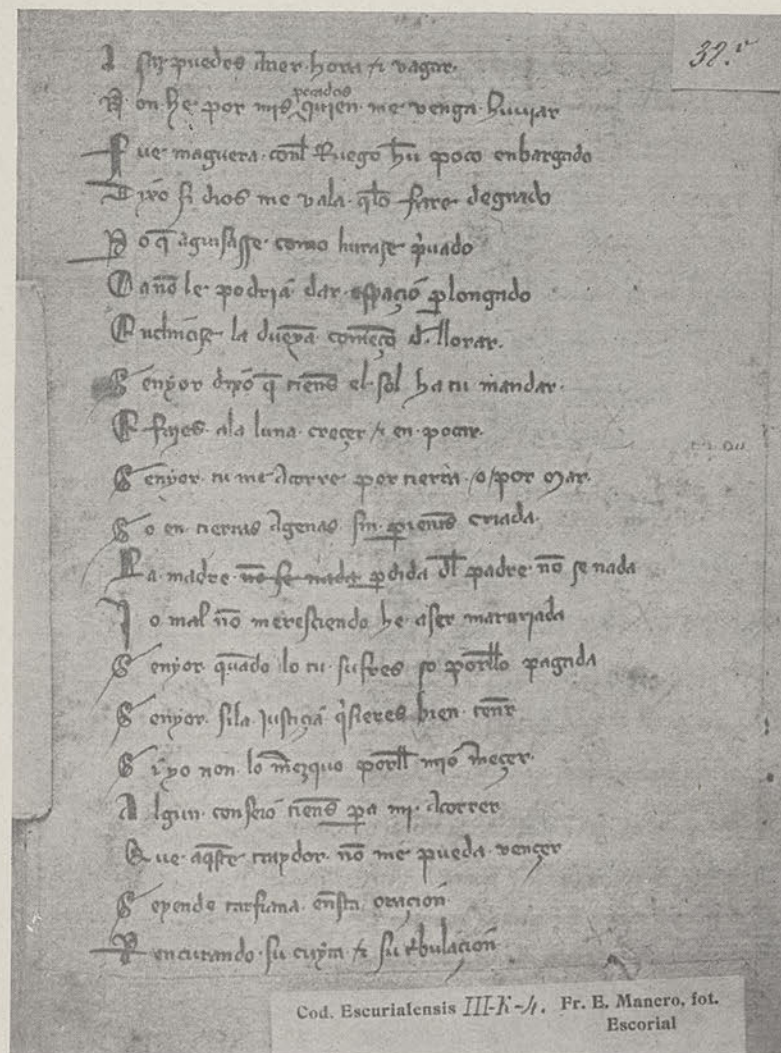 38.v
A ssaz puedes auer hora & vagar.
N on he por mis pecados quien me venga huuiar
F ue maguera conl Ruego hun poco enbargado
D ixo si dios me vala q̄lo fare degrado
N o q̄ aguisasse como hurase p̄uado
C a nō le podriā dar espaçiō ꝑlongado
E nclinose la duenya començo d llorar.
S enyor dixō q̄ tienes el sol ha tu mandar
E fazes ala luna creçer & en pocar.
S enyor tu me Acorre por tierra o por Mar.
S o en tierras Agenas sin parientes criada
La madre nō se nada ꝑdida dl padre nō se nada
I o mal nō meresçiendo he aser martiriada
S enyor quādo lo tu sufres so porēllo pagada
S enyor sila justiçia q̄sieres bien tenr
S i yo non lo m̄ezquo porell mio m̄eçer
A lgun conseiō tienes ꝑa mi Acorrer
Que aq̄ste traydor nō me pueda vençer
S eyendo tarsiana ensta oraçion
R encurando su cuyta & su tbulaçion
Cod. Escurialensis III-K-4. Fr. E. Mancro, fot.
Escorial